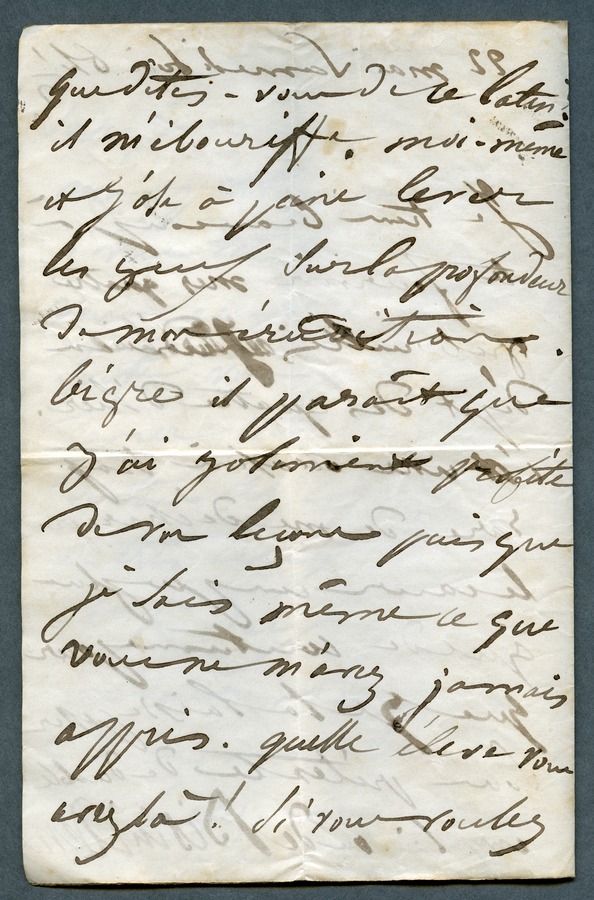 que dites-vous de ce latin!
il m'ébouriffe moi-même
et j'ose à peine lever
les yeux sur la profondeur
de mon érudition.
bigre il paraît que
j'ai joliment profité
de vos leçons puisque
je sais même ce que
vous ne m'avez jamais
appris. quelle élève vous
avez là! si vous voulez